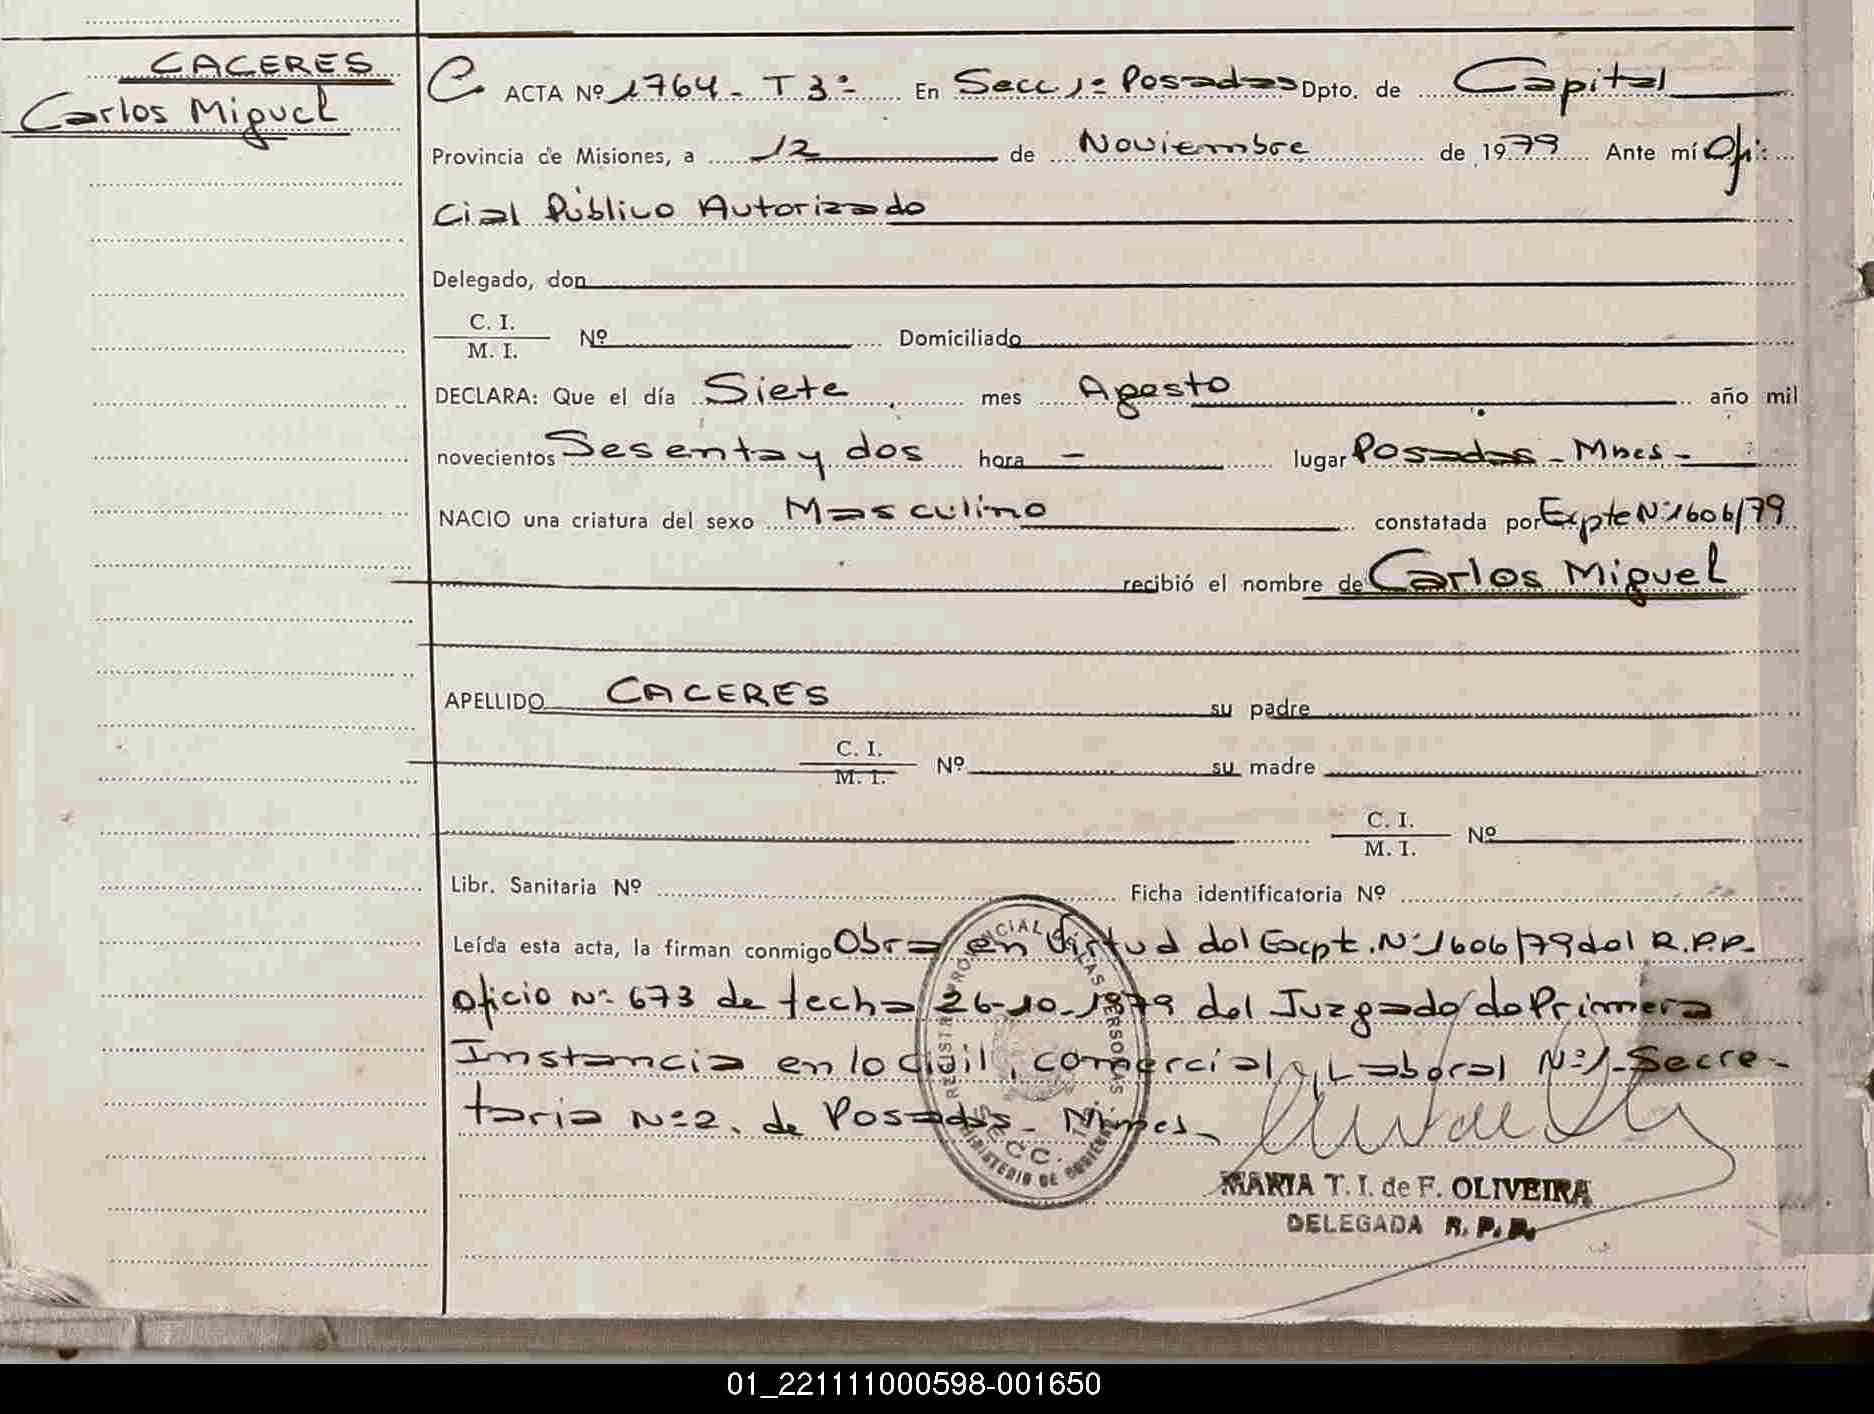 CACERES
Carlos Miguel
C. ACTA Nº 1764 - T 3º En Secc 1º Posadas Dpto. de Capital
Provincia de Misiones, a 12 de Noviembre de 1979 Ante mí Ofi-
cial Público Autorizado
Delegado, don
C. I.
M. I. Nº Domiciliado
DECLARA: Que el día Siete mes Agosto año mil
novecientos Sesenta y dos hora - lugar Posadas - Mnes -
NACIO una criatura del sexo Masculino constatada por Expte Nº 1606/79
recibió el nombre de Carlos Miguel
APELLIDO CACERES su padre
C. I.
M. I. Nº su madre
C. I.
M. I. Nº
Libr. Sanitaria Nº Ficha identificatoria Nº
Leída esta acta, la firman conmigo Obra en Virtud del Expt. Nº 1606/79 del R.P.P.
Oficio Nº 673 de fecha 26-10-1979 del Juzgado de Primera
Instancia en lo Civil, comercial y Laboral Nº 1 - Secre-
taria Nº 2. de Posadas - Mnes -
SECC. 1ª
MINISTERIO DE GOBIERNO
MARIA T. I. de F. OLIVEIRA
DELEGADA R. P. P.
01_221111000598-001650